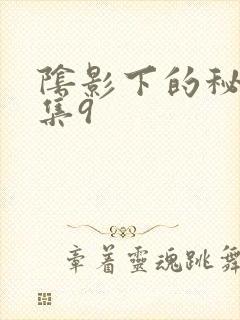 陰影下的秘
集9
章着靈魂跳舞